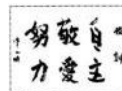 自主
敬愛
努力